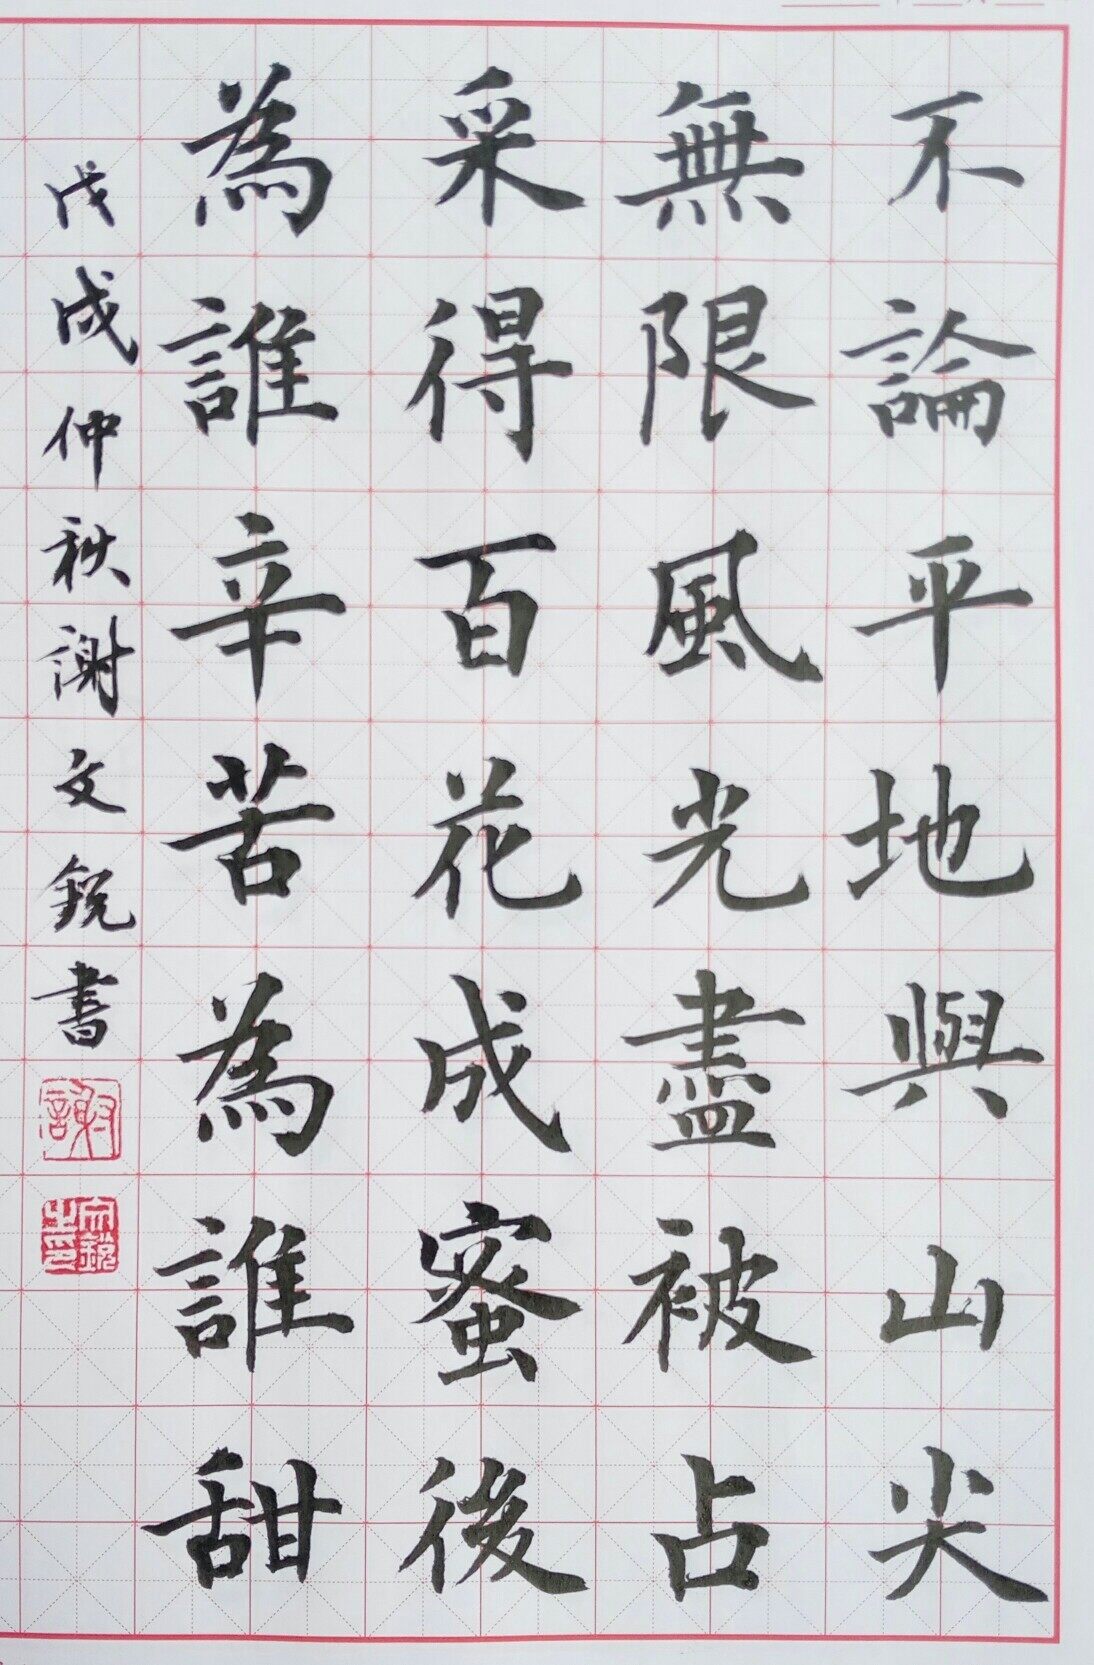 不論平地與山尖
無限風光盡被占
采得百花成蜜後
為誰辛苦為誰甜
戊戌仲秋謝文銳書
謝
文銳之印